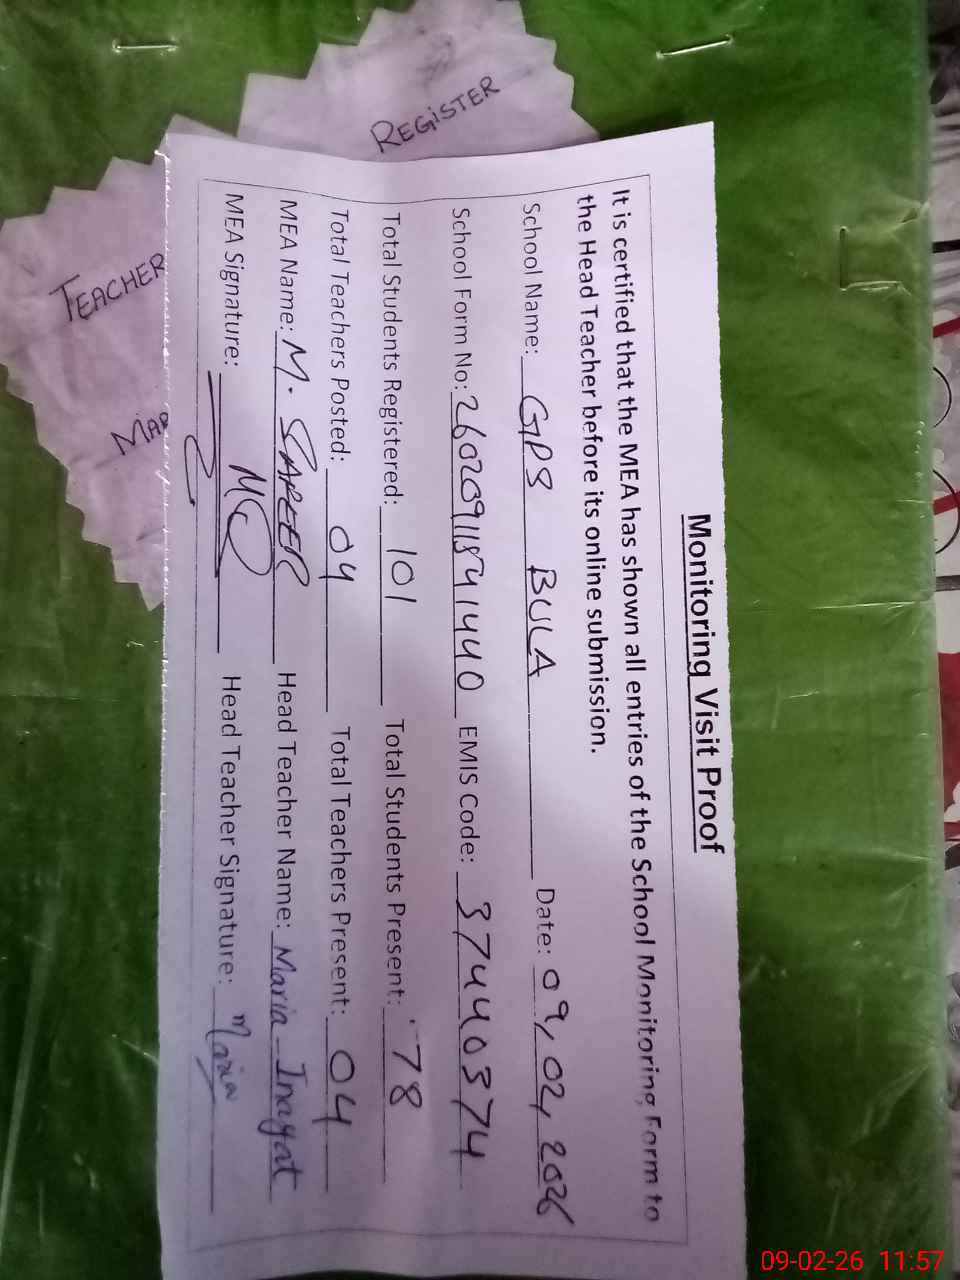 REGISTER
TEACHER
MAR
Monitoring Visit Proof
It is certified that the MEA has shown all entries of the School Monitoring Form to
the Head Teacher before its online submission.
School Name: GPS BULA Date: 09, 02, 2026
School Form No: EMIS Code: 37440374
Total Students Registered: 101 Total Students Present: 78
Total Teachers Posted: 04 Total Teachers Present: 04
MEA Name: M. Head Teacher Name: Maria Inayat
MEA Signature: Head Teacher Signature: Maria
09-02-26 11:57